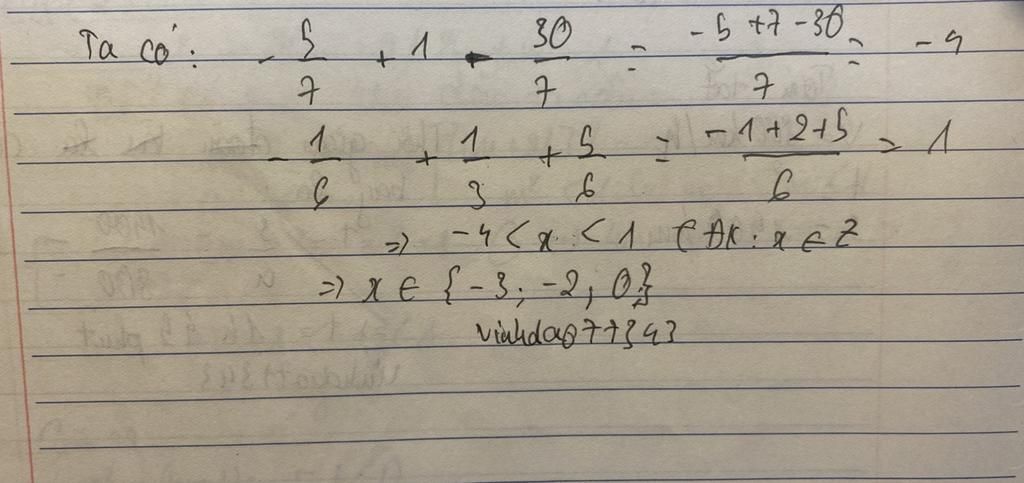 Ta có: - 5/7 + 1 - 30/7 = (-5 + 7 - 30)/7 = -4
- 1/6 + 1/3 + 5/6 = (-1 + 2 + 5)/6 = 1
=> -4 < x < 1 ( ĐK : x ∈ Z
=> x ∈ { -3 ; -2 ; 0 }
vinhdao77343